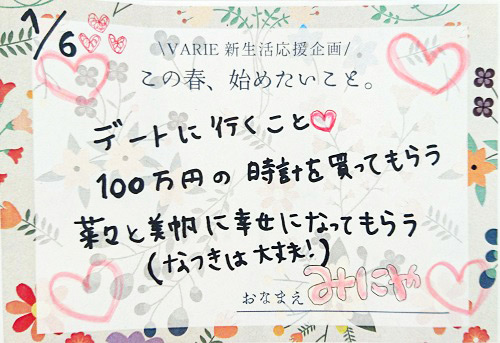 1/6
\VARIE 新生活応援企画/
この春、始めたいこと。
デートに行くこと♡
100万円の時計を買ってもらう
菜々と美帆に幸せになってもらう
(なつきは大丈夫!)
おなまえ みにゃ